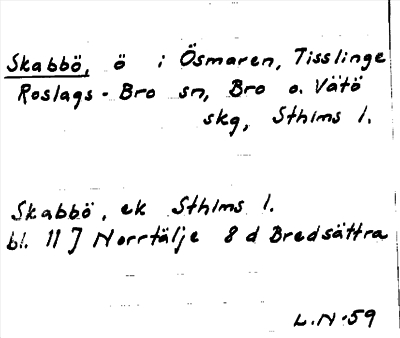 Skabbö, ö i Ösmaren, Tisslinge
Roslags-Bro sn, Bro o. Vätö
skg, Sthlms l.
Skabbö, ek Sthlms l.
bl. 11 J Norrtälje 8 d Bredsättra
L.N.59